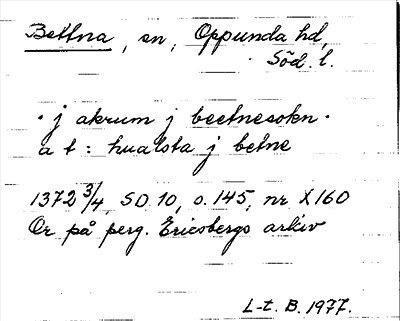 Bettna, sn, Oppunda hd,
Söd. l.
· j akrum j beetnesokn ·
a t : hualsta j betne
1372 3/4, SD 10, s. 145, nr X160
Or på perg. Ericsbergs arkiv
L-t. B. 1977.